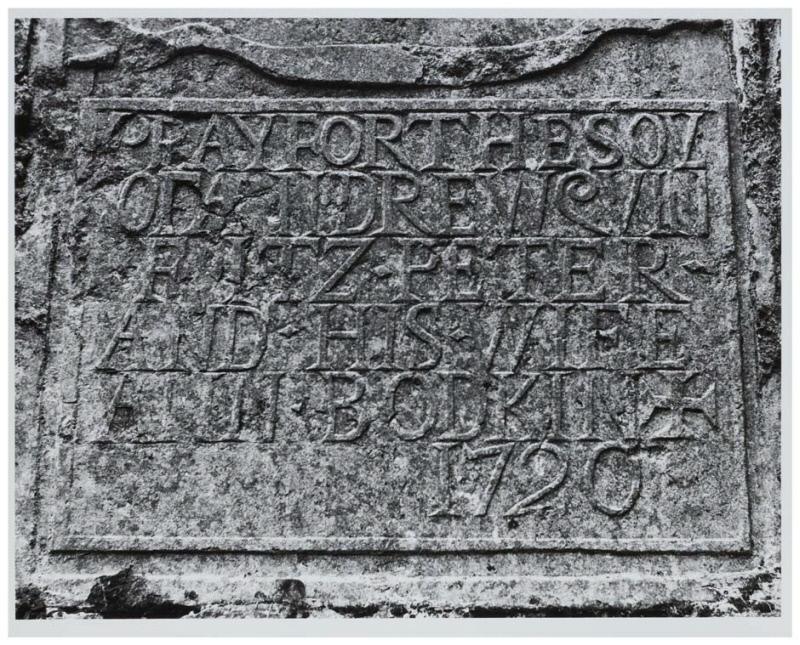 PRAY FOR THE SOVL
OF ANDREW
FITZ·PETER·
AND·HIS·WIFE
ANN·BODKIN ✠
1720